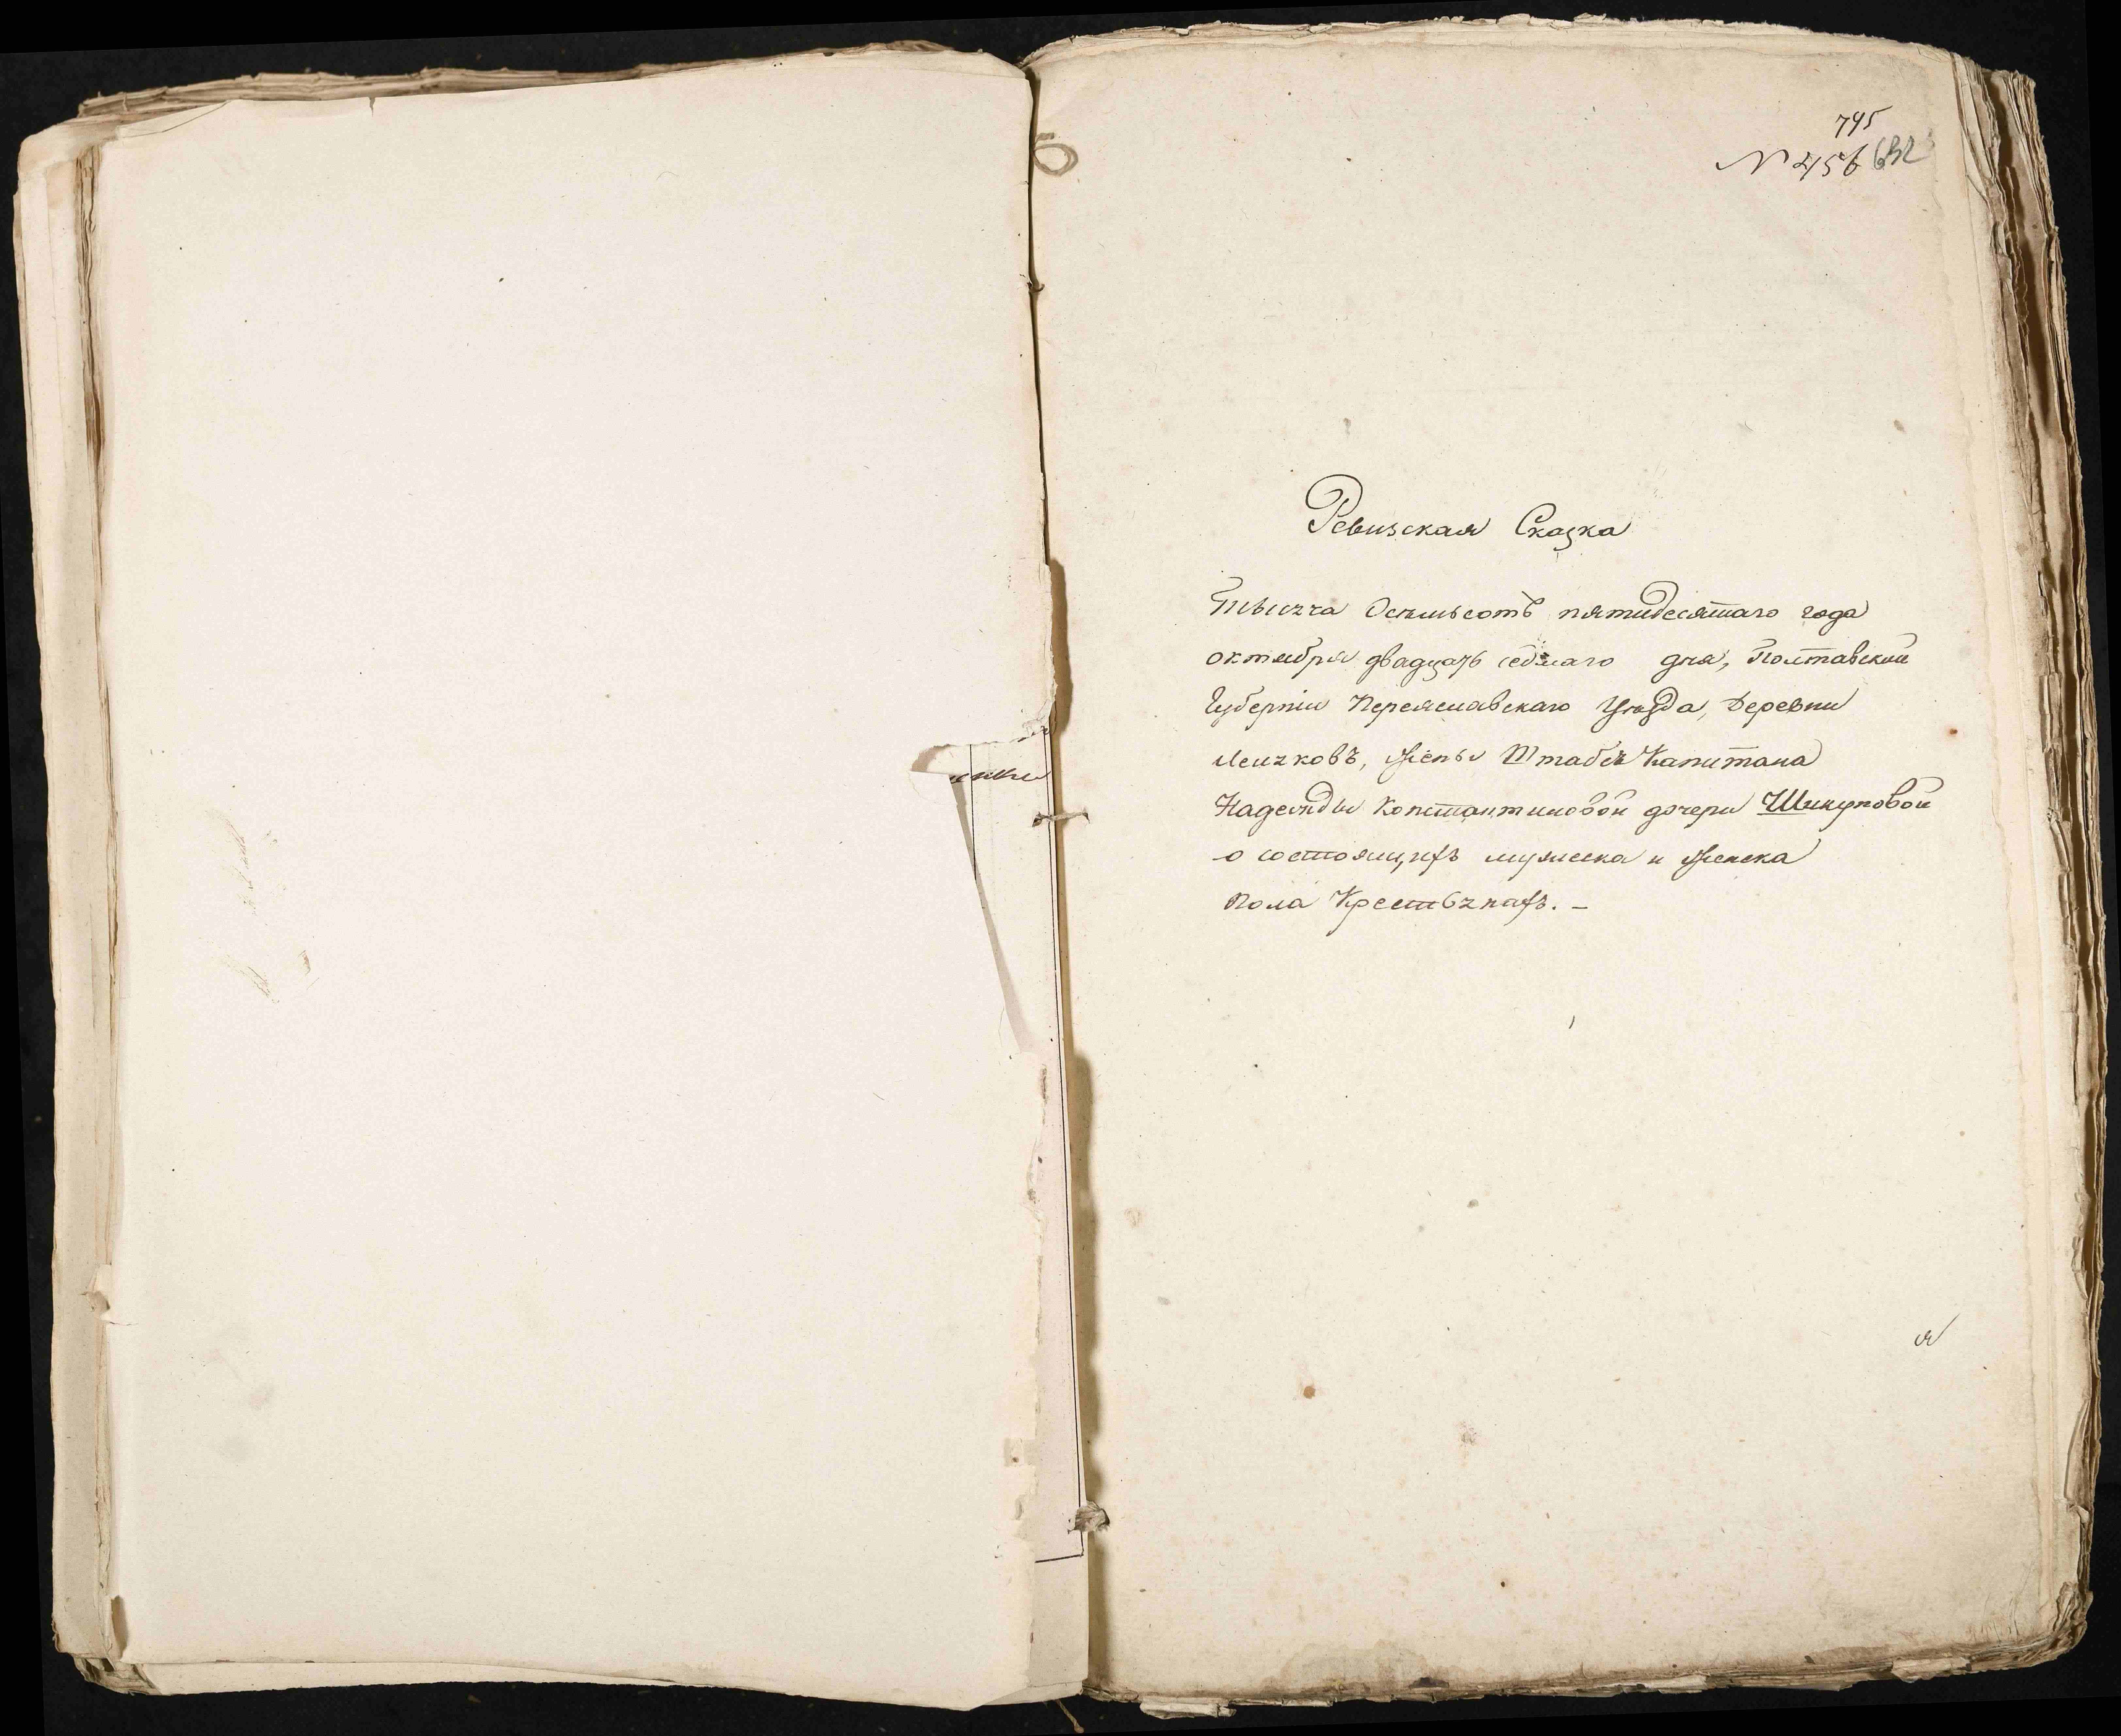 795
N 456 632
Ревизская Сказка
Тысяча Осемьсотъ пятидесятаго года
октября двадцать седмаго дня, Полтавской
Губерніи Переяславскаго Уѣзда, Деревни
Лечковъ, Жены Штабсъ Капитана
Надежды Константиновой дочери Шикуновой
о состоящихъ мужеска и женска
Пола Крестьянахъ. –